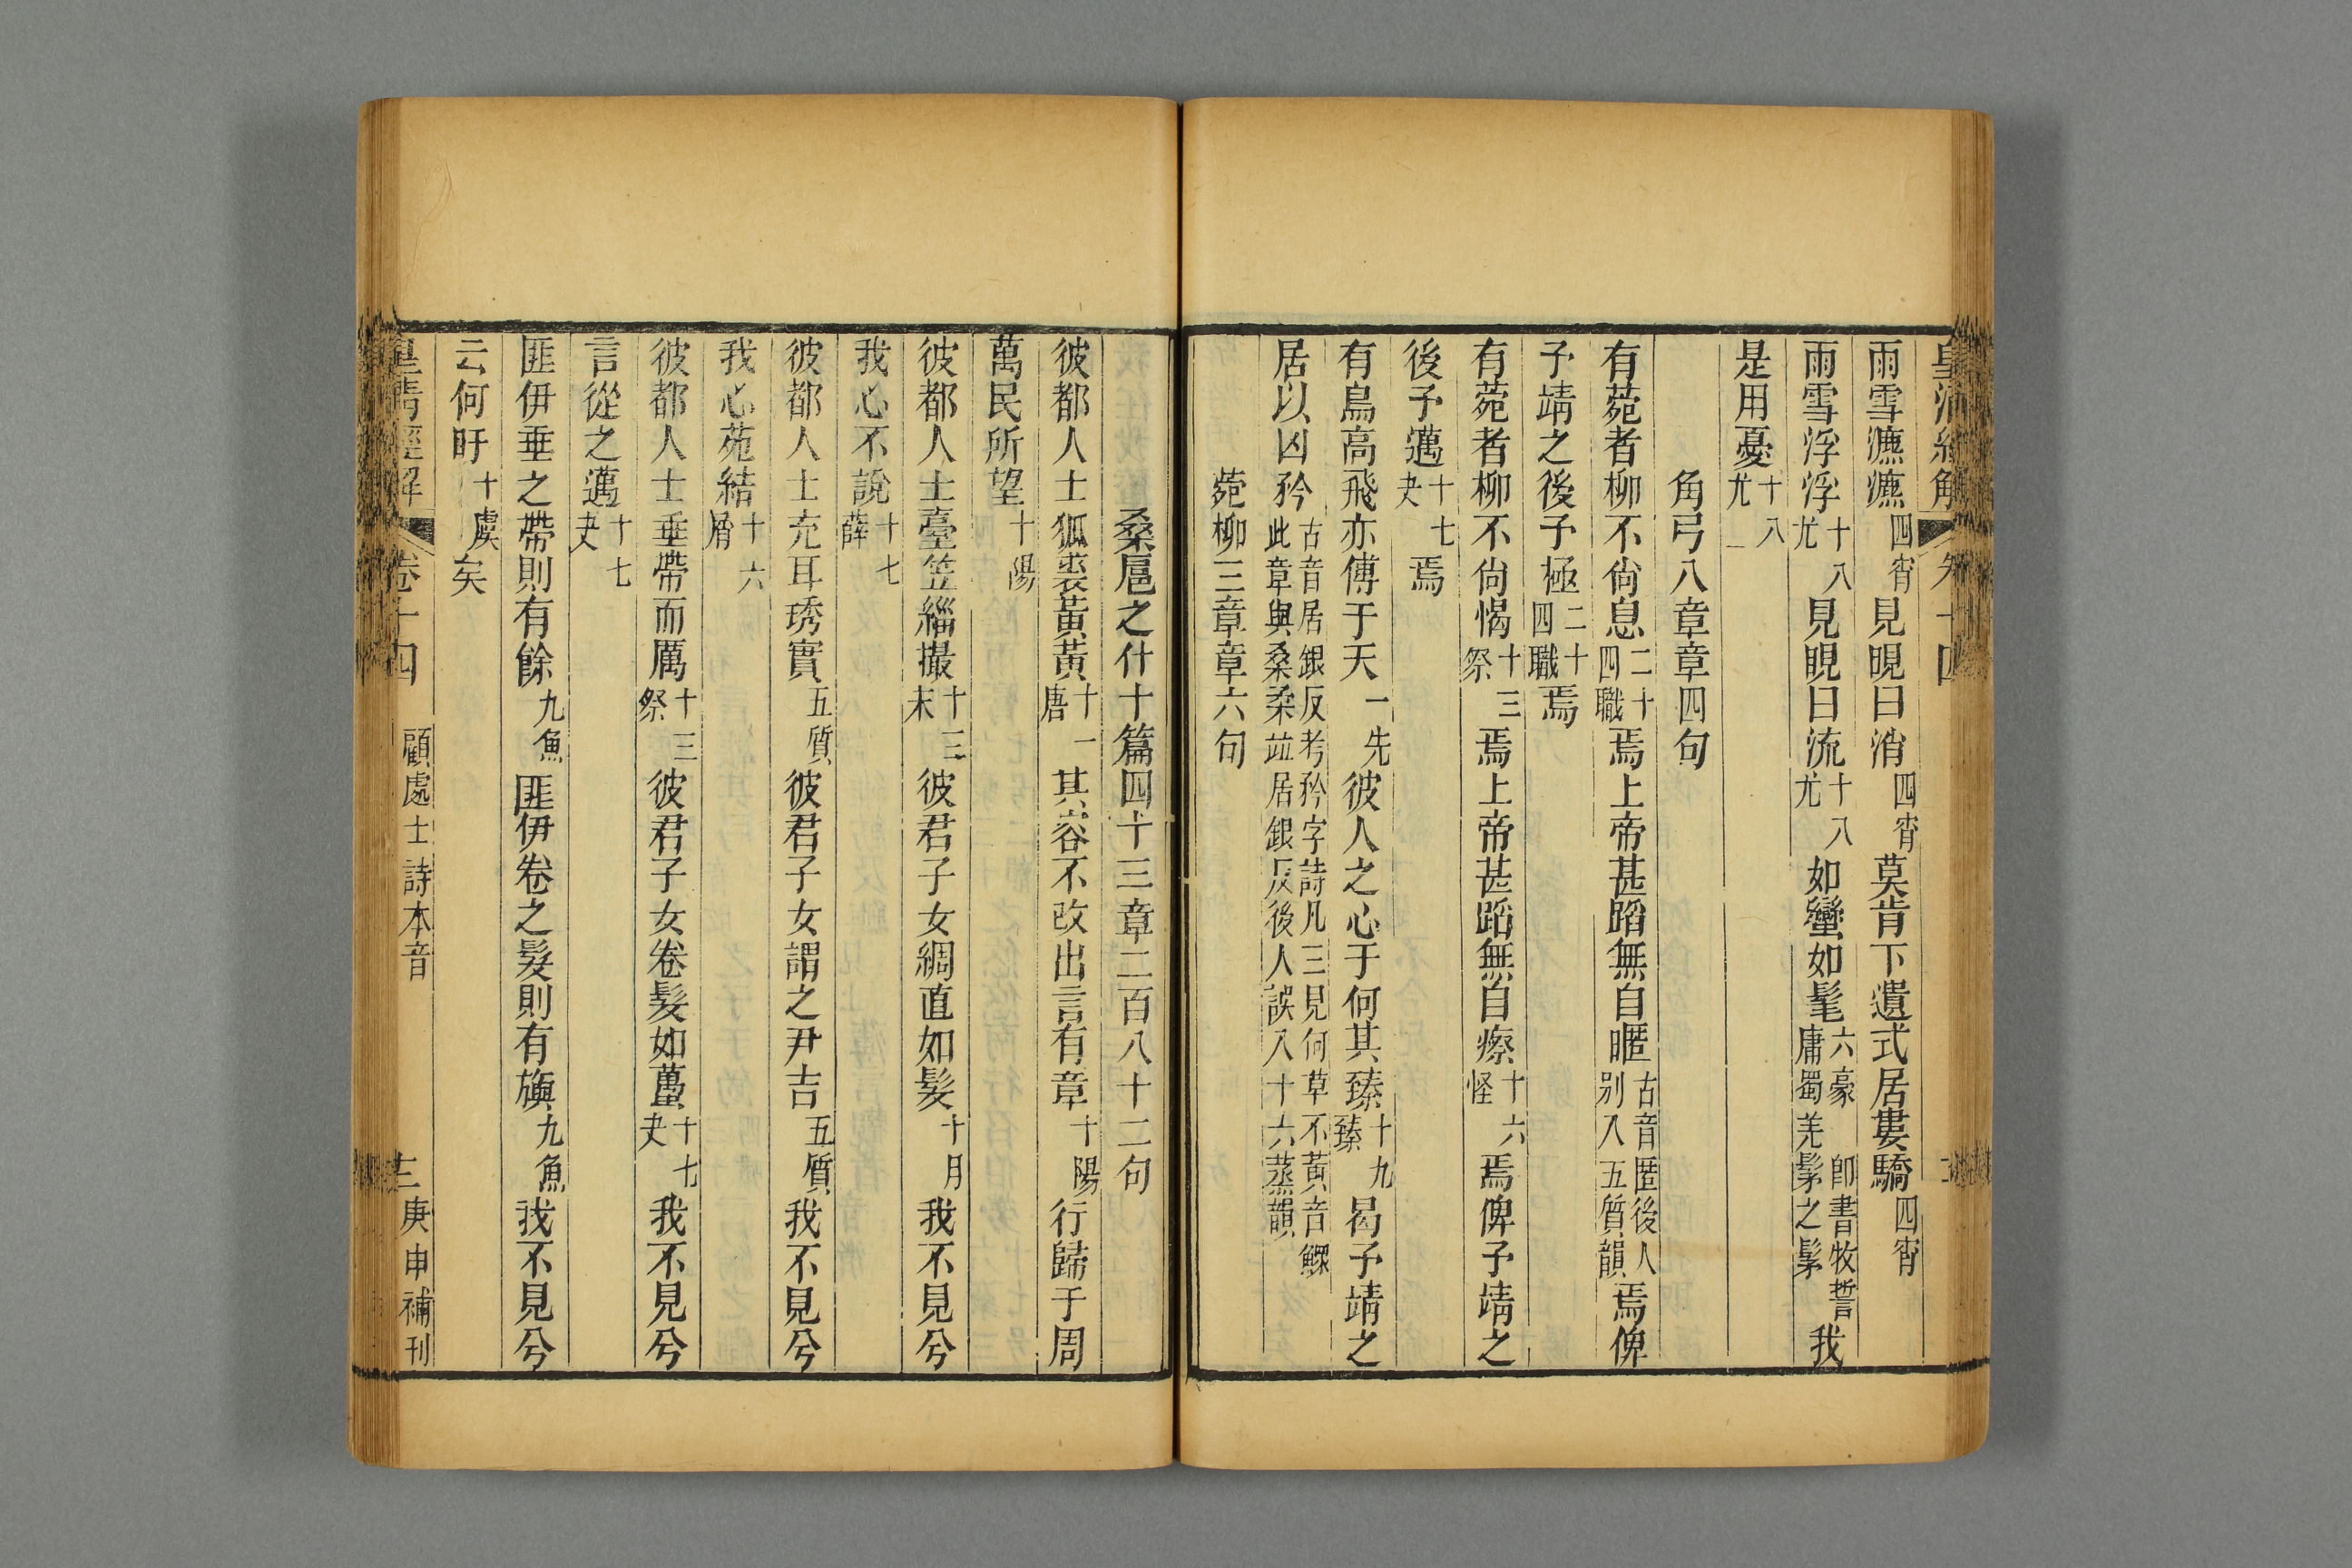 皇清經解 卷十四
雨雪瀌瀌四宵見晛曰消四宵莫肯下遺式居婁驕四宵
雨雪浮浮十八尤見晛曰流十八尤如蠻如髦六豪 卽書牧誓庸蜀羌髳之髳我
是用憂十八尤
角弓八章章四句
有菀者柳不尙息二十四職焉上帝甚蹈無自暱古音匿後人别入五質韻焉俾
予靖之後予極二十四職焉
有菀者柳不尙愒十三祭焉上帝甚蹈無自瘵十六怪焉俾予靖之
後予邁十七夬焉
有鳥高飛亦傅于天一先彼人之心于何其臻十九臻曷予靖之
居以凶矜古音居銀反考矜字詩凡三見何草不黃音鰥此章與桑柔竝居銀反後人誤入十六蒸韻
菀柳三章章六句
桑扈之什十篇四十三章二百八十二句
彼都人士狐裘黃黃十一唐其容不改出言有章十陽行歸于周
萬民所望十陽
彼都人士臺笠緇撮十三末彼君子女綢直如髮十月我不見兮
我心不說十七薛
彼都人士充耳琇實五質彼君子女謂之尹吉五質我不見兮
我心苑結十六屑
彼都人士垂帶而厲十三祭彼君子女卷髮如蠆十七夬我不見兮
言從之邁十七夬
匪伊垂之帶則有餘九魚匪伊卷之髮則有旟九魚我不見兮
云何盱十虞矣
皇清經解 卷十四 顧處士詩本音 庚申補刊